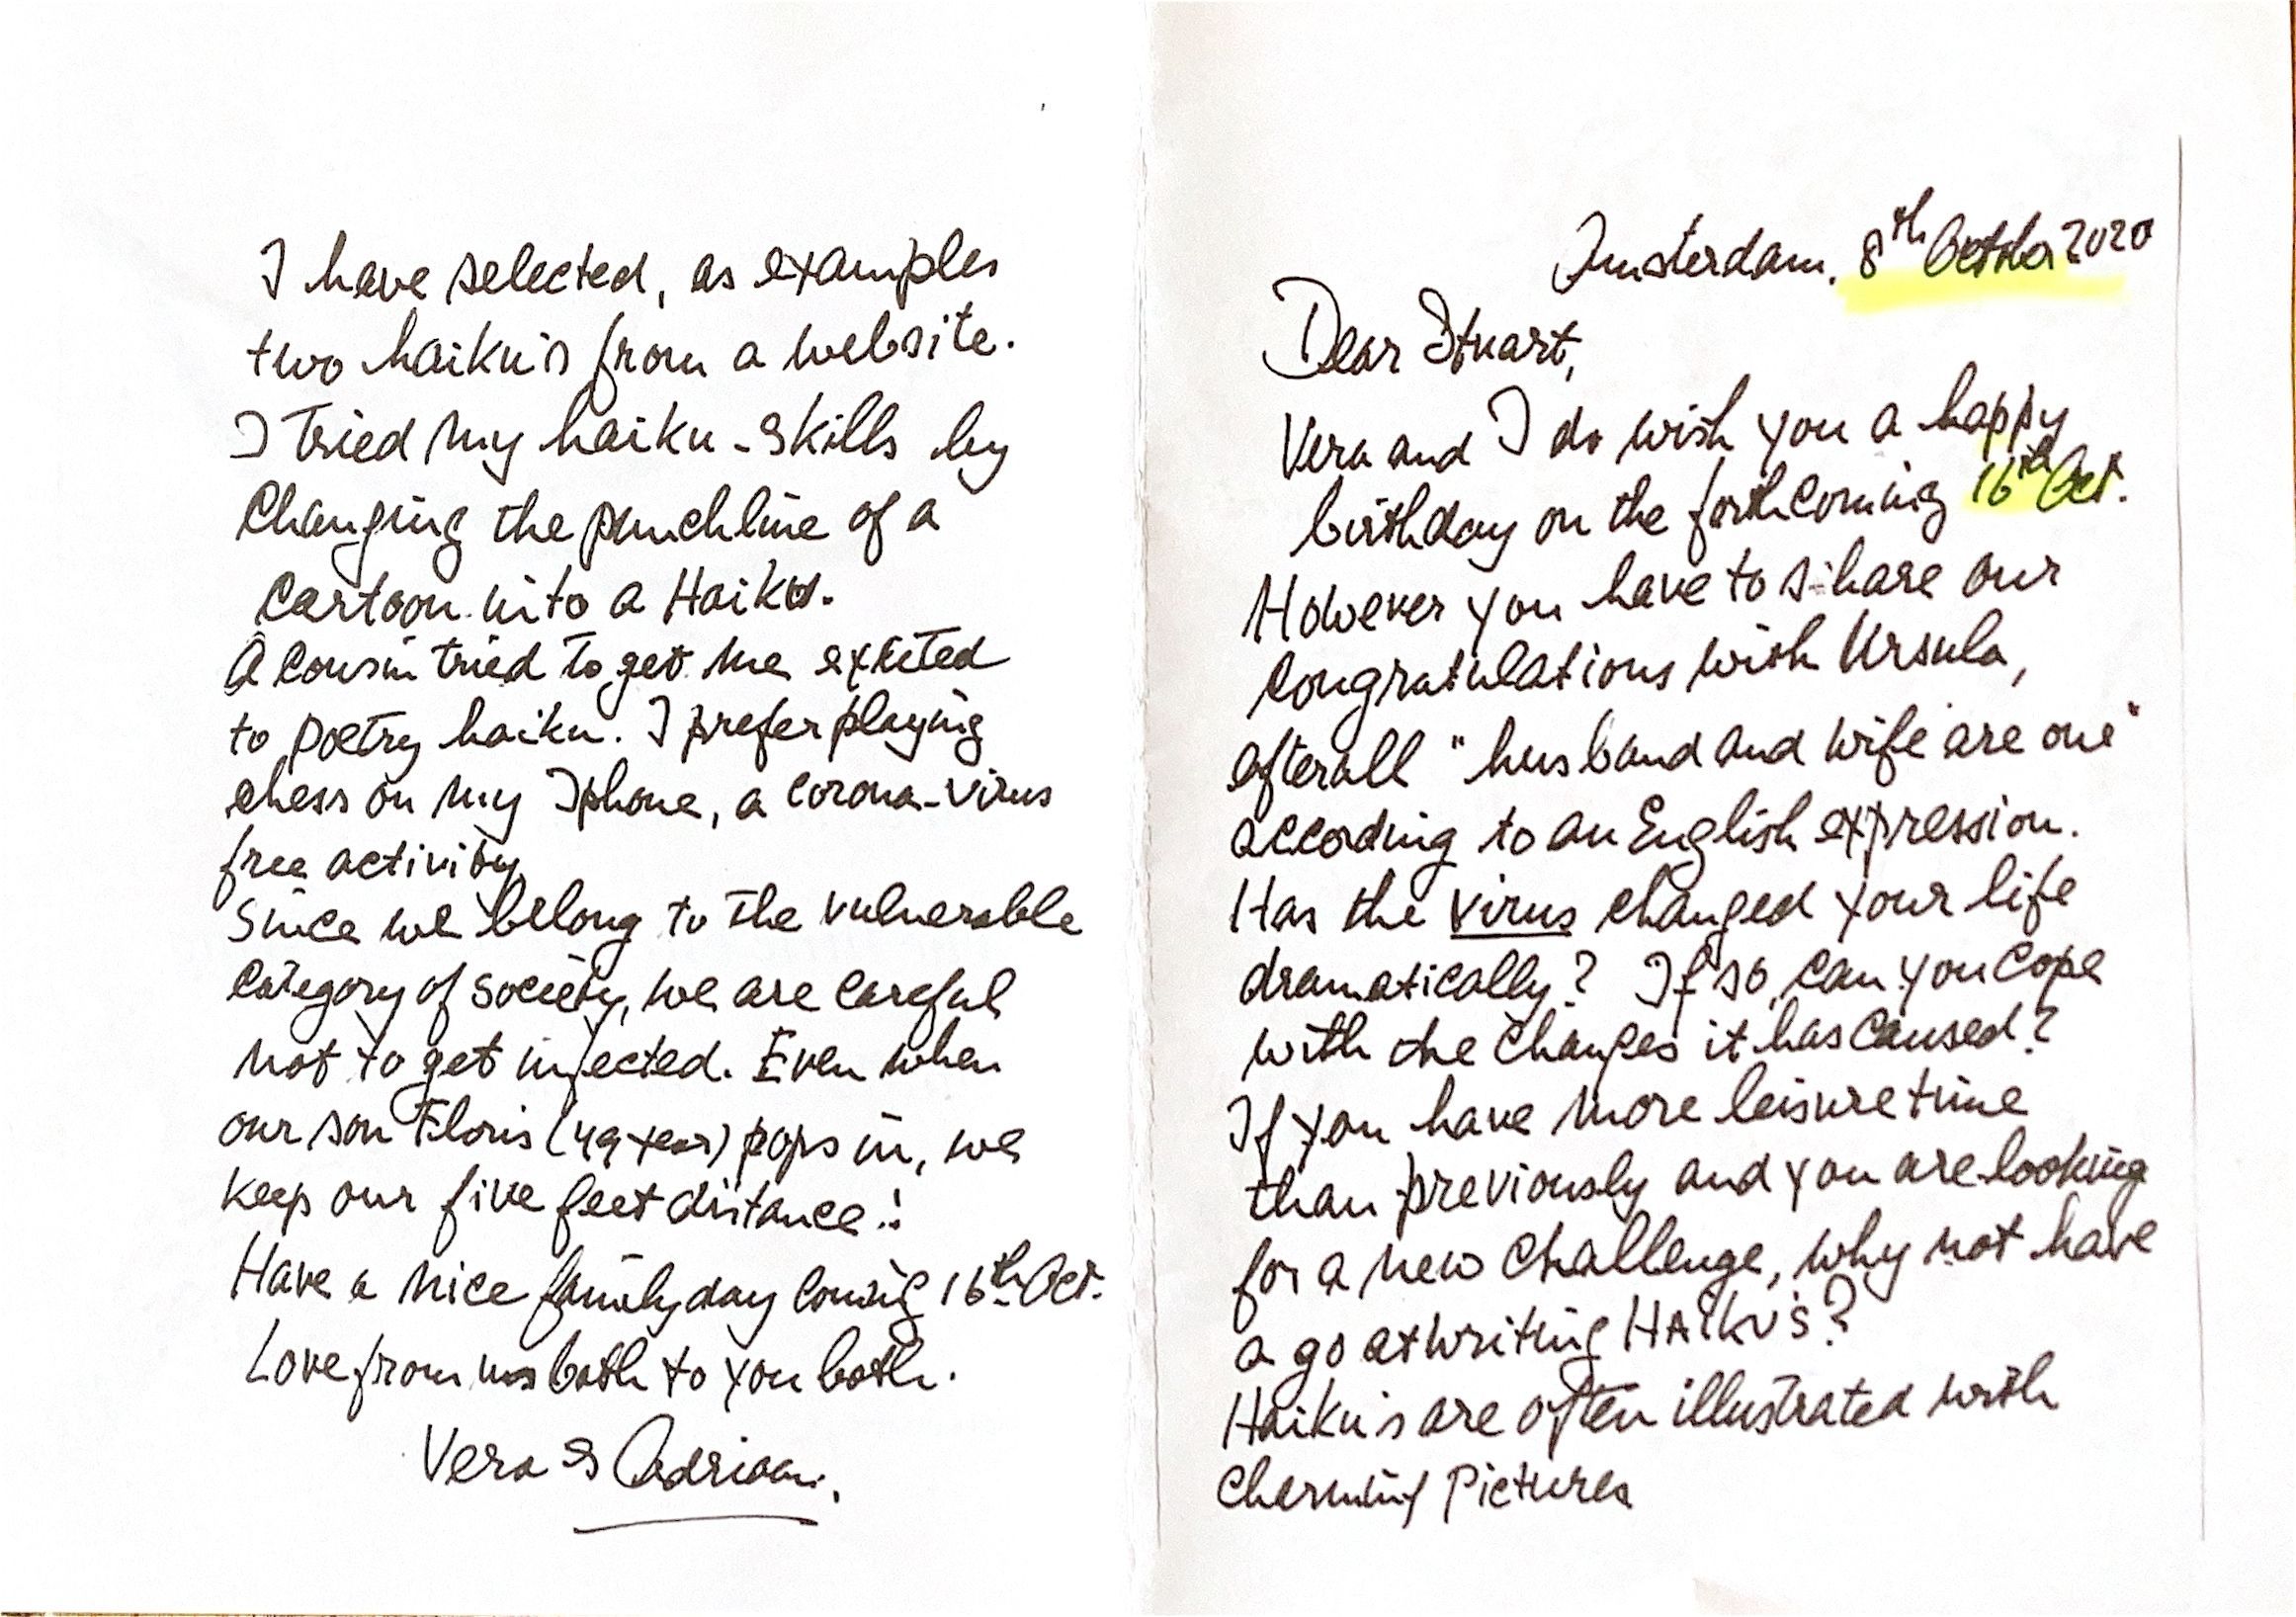 Amsterdam. 8th October 2020
Dear Stuart,
Vera and I do wish you a happy
birthday on the forthcoming 16th Oct.
However you have to share our
congratulations with Ursula,
afterall "husband and wife are one"
according to an English expression.
Has the virus changed your life
dramatically? If so, can you cope
with the changes it has caused?
If you have more leisure time
than previously and you are looking
for a new challenge, why not have
a go at writing HAIKU's?
Haiku's are often illustrated with
charming pictures
I have selected, as examples
two haiku's from a website.
I tried my haiku-skills by
changing the punchline of a
cartoon into a Haiku.
A cousin tried to get me exited
to poetry haiku. I prefer playing
chess on my Iphone, a corona-virus
free activity
Since we belong to the vulnerable
category of society, we are careful
not to get infected. Even when
our son Floris (49 year) pops in, we
keep our five feet distance!
Have a nice family day coming 16th Oct.
Love from us both to you both.
Vera & Adriaan.